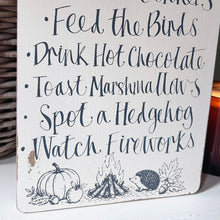 • Feed the Birds
• Drink Hot Chocolate
• Toast Marshmallows
• Spot a Hedgehog
Watch Fireworks